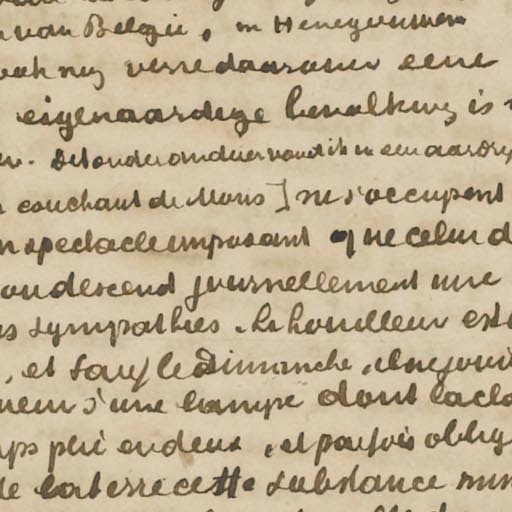 van België, in Henegouwen
ook nog verre daarover eene
eigenaardige bevolking is
Het onder onder vond ik in een aardr
couchant de Mons] ne s'occupent
spectacle imposant que celui d
on descend journellement une
s sympathies. Le houilleur est
, et sauf le Dimanche, il ne joui
lueur d'une lampe dont la cla
ps plié en deux, et parfois oblig
de la terre cette substance min